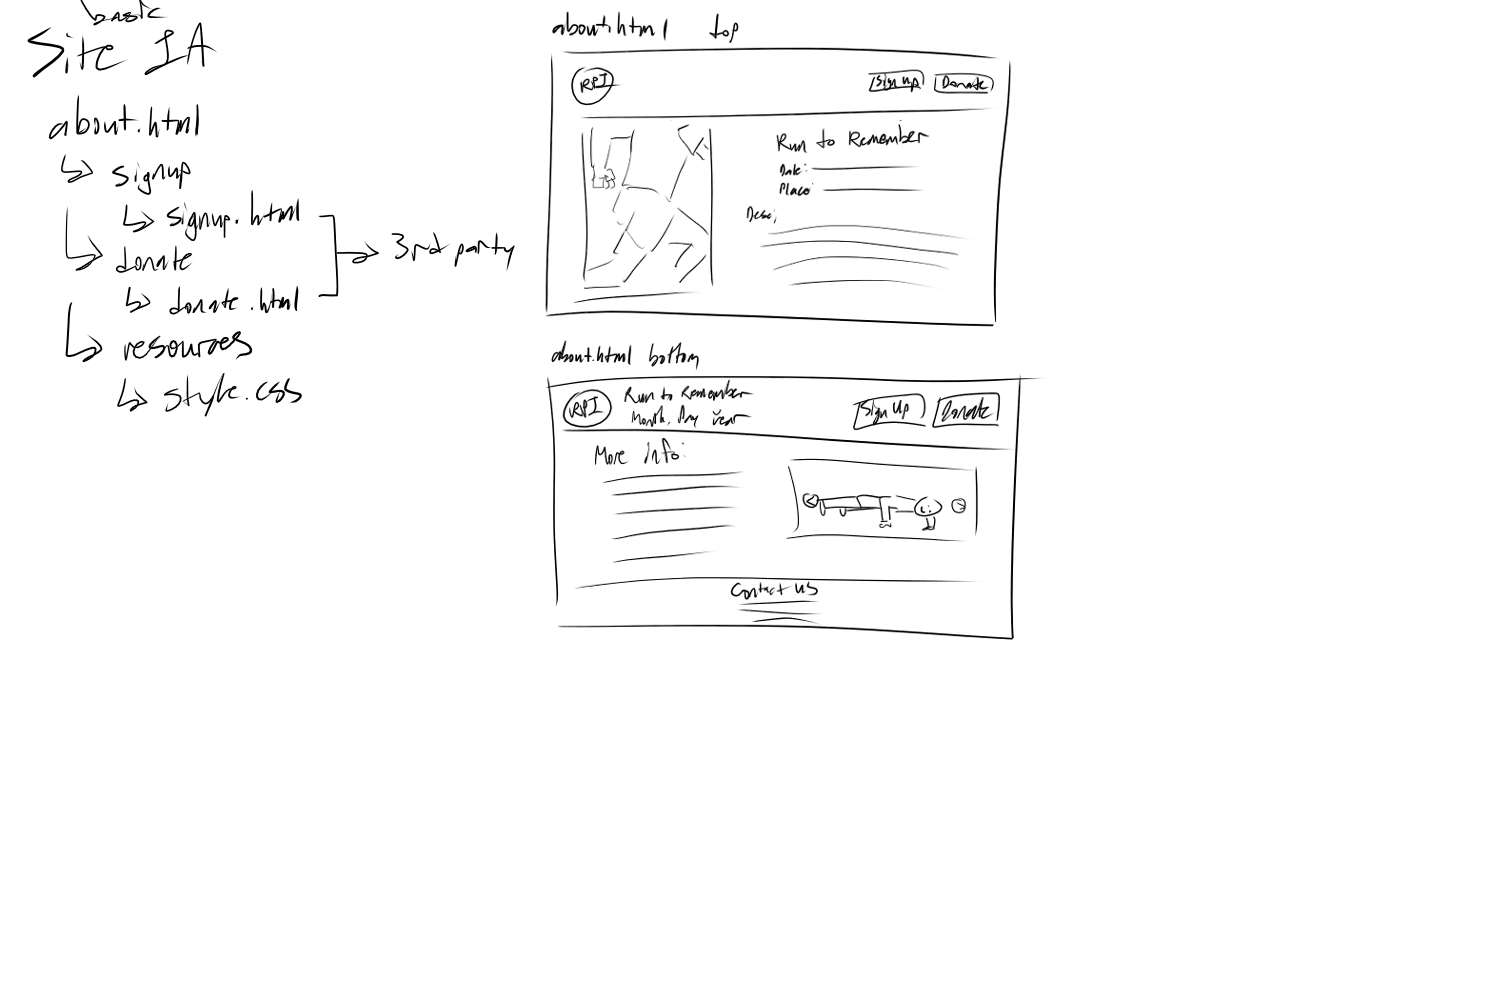 basic
Site IA
about.html
signup
signup.html
donate
donate.html
3rd party
resources
style.css
about.html top
RPI
Sign up
Donate
Run to Remember
Date:
Place:
Desc:
about.html bottom
RPI
Run to Remember
Month, Day Year
Sign Up
Donate
More info:
Contact us